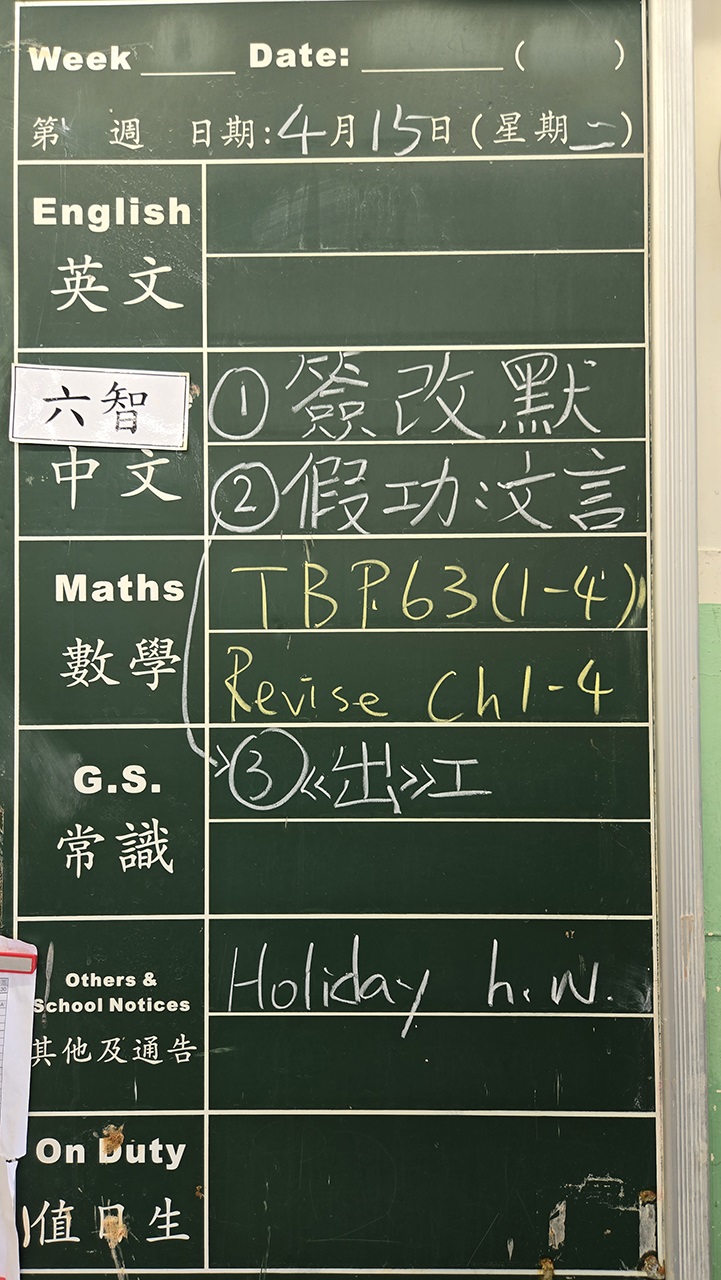 Week ____ Date: ________ (      )
第 週 日期:4月15日(星期二)
English
英文
六智
中文
①簽改默
②假功:文言
Maths
數學
TBP.63(1-4)
Revise Ch1-4
G.S.
常識
③《出》工
Others &
School Notices
其他及通告
Holiday h.w.
On Duty
值日生